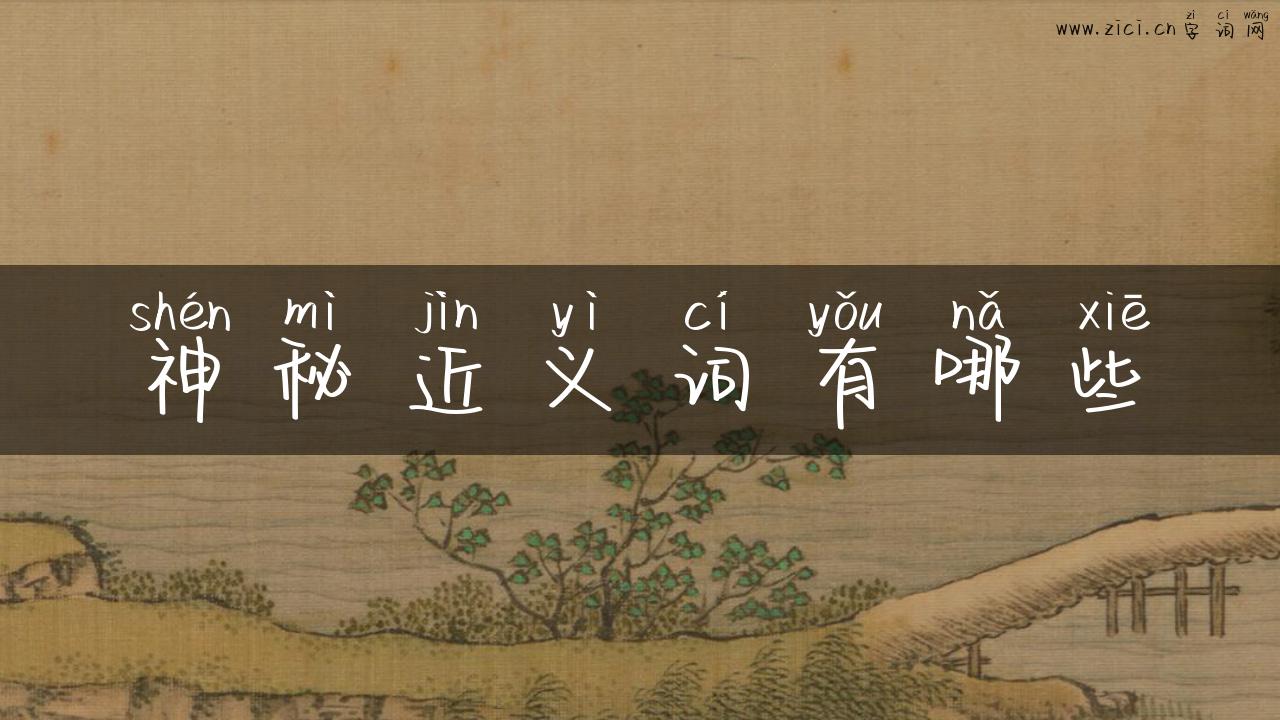 zì cí wǎng
www.zici.cn 字 词 网
shén mì jìn yì cí yǒu nǎ xiē
神 秘 近 义 词 有 哪 些